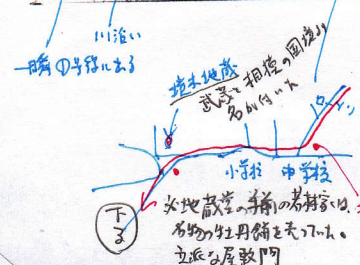 川沿い
一瞬①号線に出る
境木地蔵
武蔵と相模の国境が
名が付いた
小学校
中学校
下る
※地蔵堂の手前の若林家は、
名物の牡丹餅を売っていた。
立派な屋敷門